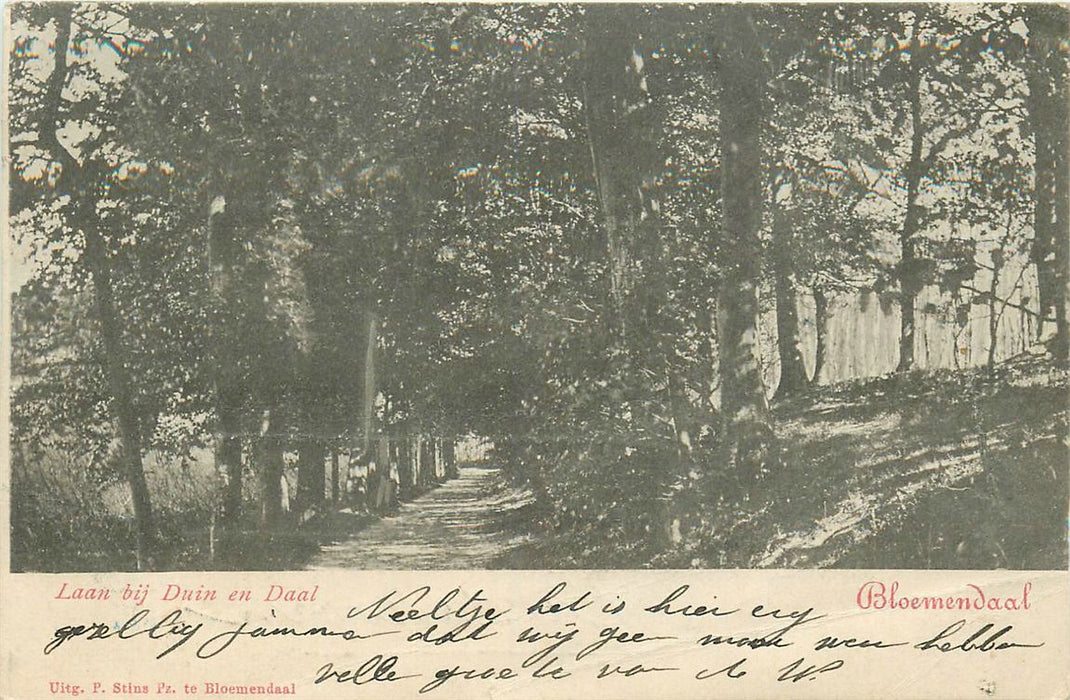 Laan bij Duin en Daal
Bloemendaal
Neeltje het is hier erg
gezellig jammer dat wij geen man wen hebben
velle groete van de W.
Uitg. P. Stins Pz. te Bloemendaal